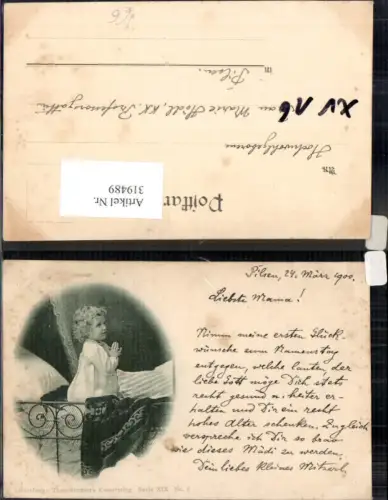 166
in Pilsen.
Frau Marie Hödl, KK. Professorsgattin
XV 16
Hochwohlgeboren
An
Artikel Nr.
319489
Postkar
Pilsen, 24. März 1900.
Liebste Mama!
Nimm meine ersten Glück-
wünsche zum Namenstag
entgegen, welche lauten, der
liebe Gott möge Dich stets
recht gesund u. heiter er-
halten und Dir ein recht
hohes Alter schenken. Zugleich
verspreche ich Dir so brav
wie dieses Mädi zu werden,
Dein liebes kleines
Serie XIX No. 1